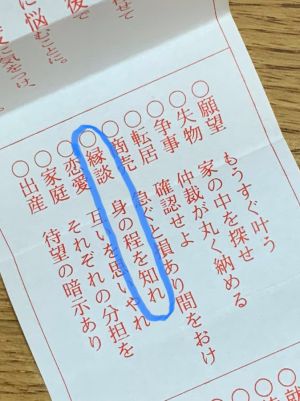 せて
後で
に悩むことに。
に気をつけ、
○願望 もうすぐ叶う
○失物 家の中を探せ
○争事 仲裁が丸く納める
○転居 確認せよ 間をおけ
○商売 急ぐと損あり
○縁談 身の程を知れ
○恋愛 互いを思いやれ
○家庭 それぞれの分担を
○出産 待望の暗示あり